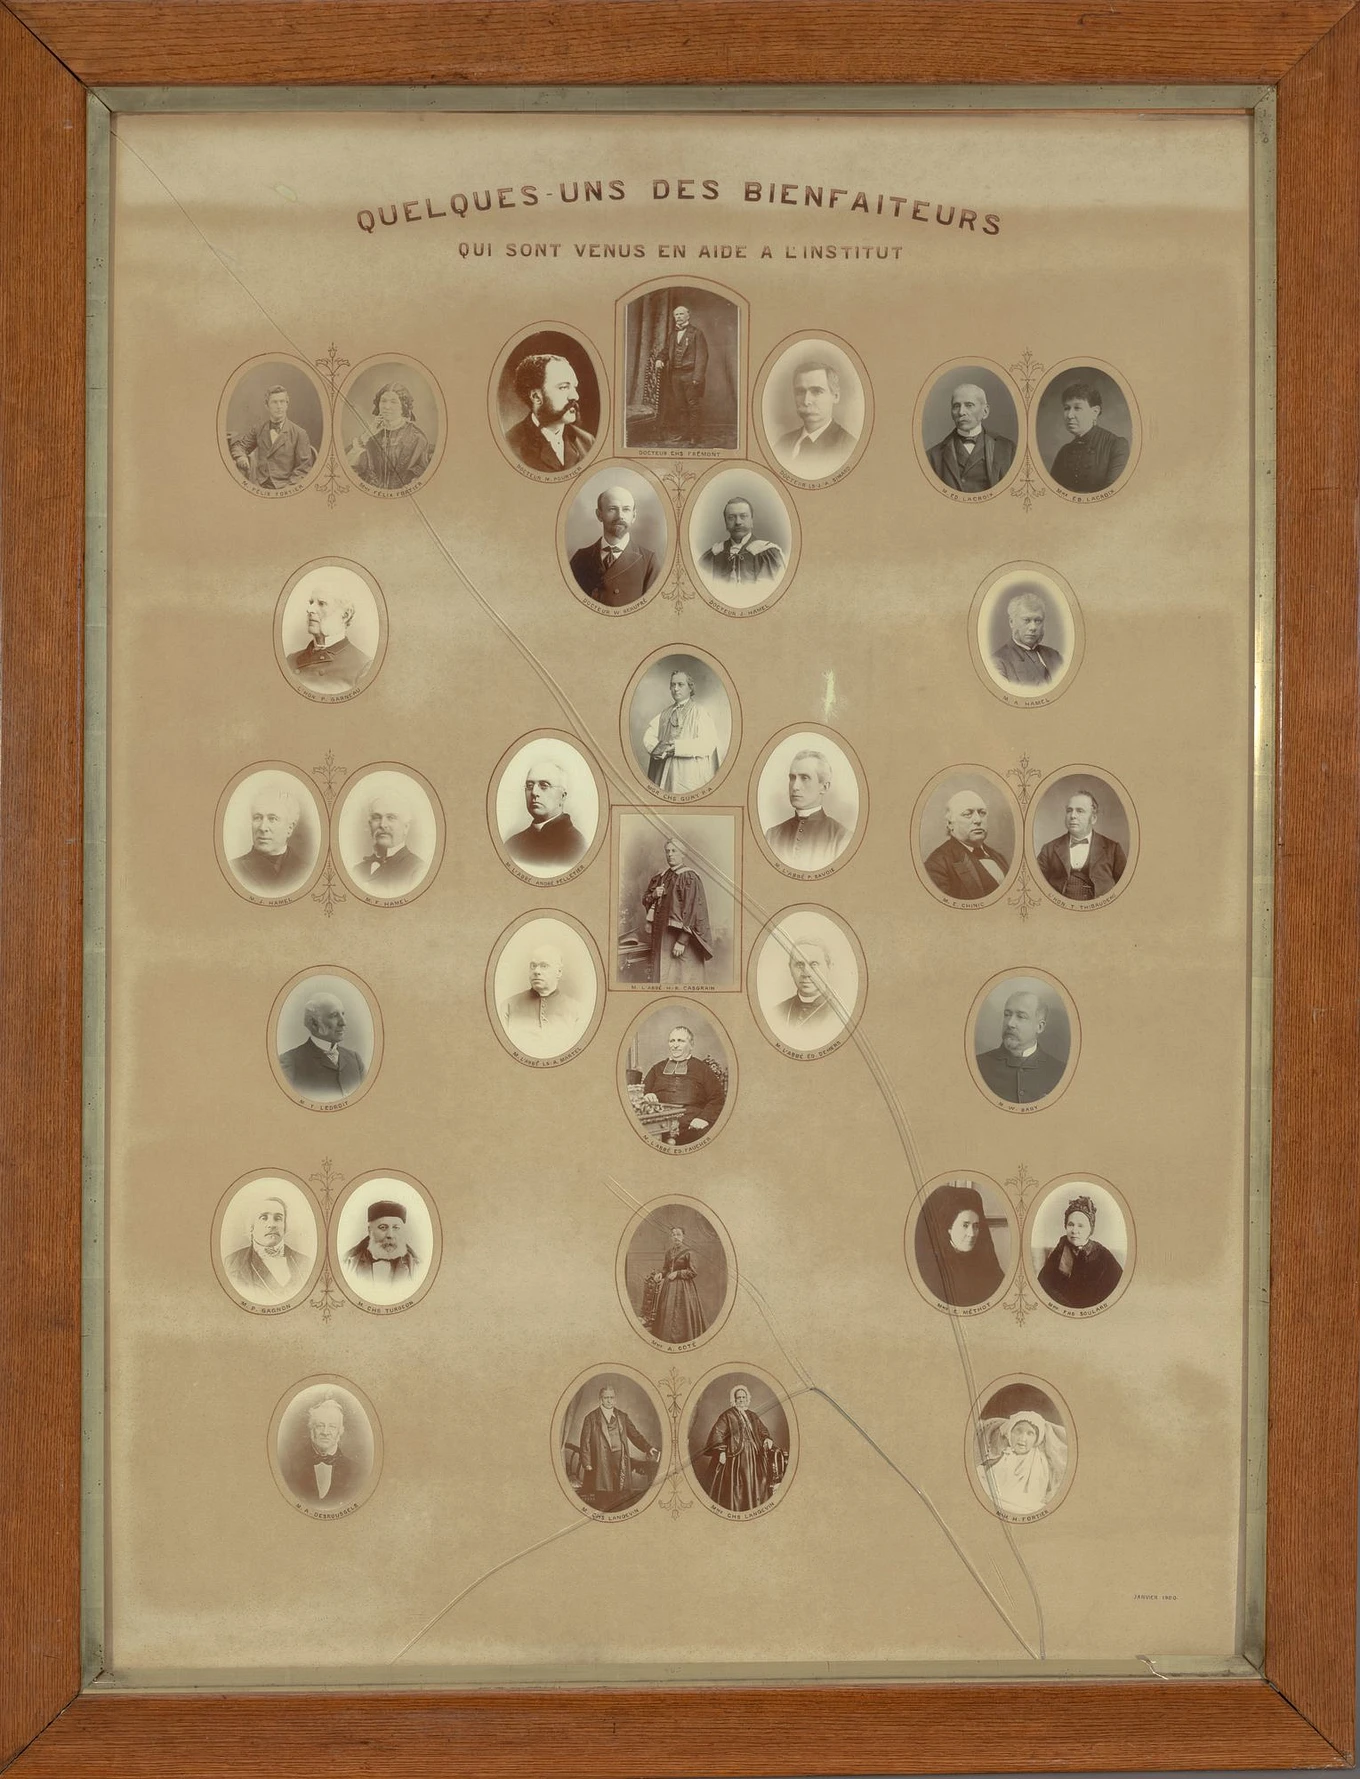 QUELQUES-UNS DES BIENFAITEURS
QUI SONT VENUS EN AIDE A L'INSTITUT
M. FÉLIX FORTIER
MME FÉLIX FORTIER
DOCTEUR N. FOURNIER
DOCTEUR CHS FRÉMONT
DOCTEUR LS-J-A. SIMARD
M. ED. LACROIX
MME ED. LACROIX
DOCTEUR W. BEAUPRÉ
DOCTEUR J. HAMEL
L'HON. P. GARNEAU
M. A. HAMEL
MGR CHS GUAY P.A.
M. J. HAMEL
M. F. HAMEL
M. L'ABBÉ ANDRÉ PELLETIER
M. L'ABBÉ P. SAVOIE
M. E. CHINIC
L'HON. T. THIBAUDEAU
M. L'ABBÉ H-R. CASGRAIN
M. L'ABBÉ LS-A. MARTEL
M. L'ABBÉ ED. DEMERS
M. T. LEDROIT
M. W. BABY
M. L'ABBÉ ED. FAUCHER
M. P. GAGNON
M. CHS TURGEON
MME A. COTÉ
MME E. MÉTHOT
MME FRS BOULARD
M. A. DESROUSSELS
M. CHS LANGEVIN
MME CHS LANGEVIN
MME M. FORTIER
JANVIER 1900